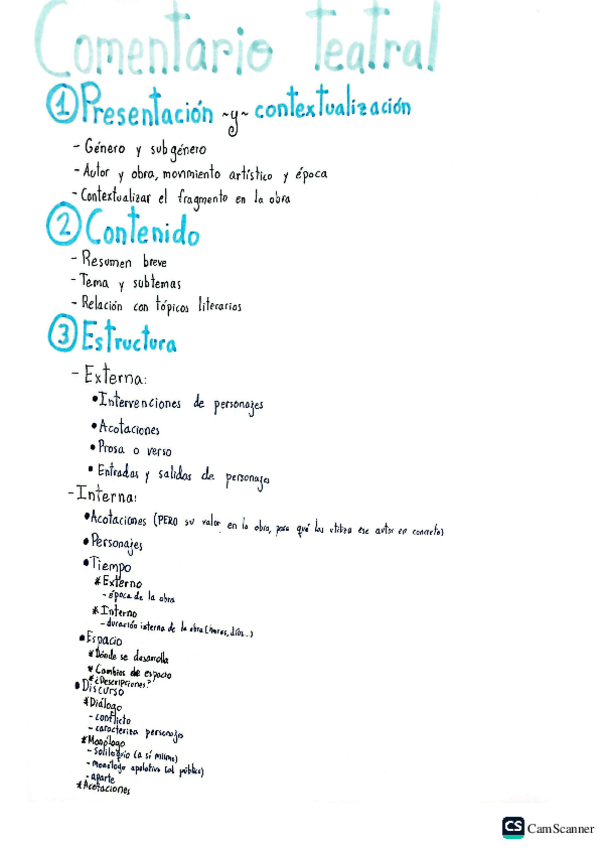 Comentario teatral
① Presentación ~y~ contextualización
- Género y subgénero
- Autor y obra, movimiento artístico y época
- Contextualizar el fragmento en la obra
② Contenido
- Resumen breve
- Tema y subtemas
- Relación con tópicos literarios
③ Estructura
- Externa:
• Intervenciones de personajes
• Acotaciones
• Prosa o verso
• Entradas y salidas de personajes
- Interna:
• Acotaciones (PERO su valor en la obra, para qué las utiliza ese autor en concreto)
• Personajes
• Tiempo
* Externo
- época de la obra
* Interno
- duración interna de la obra (horas, días...)
• Espacio
* Dónde se desarrolla
* Cambios de espacio
* ¿Descripciones?
• Discurso
* Diálogo
- conflicto
- caracteriza personaje
* Monólogo
- soliloquio (a sí mismo)
- monólogo apelativo (al público)
- aparte
* Acotaciones
CS CamScanner